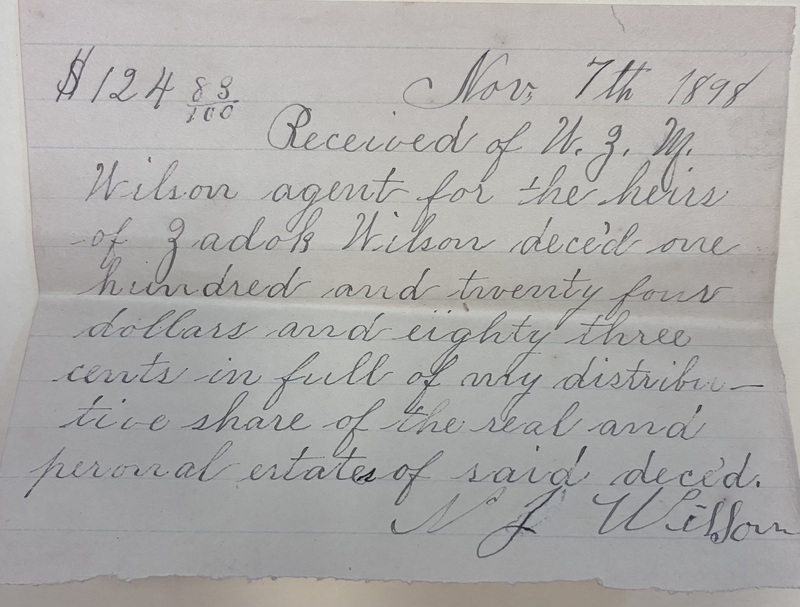 $124 83/100 Nov. 7th 1898
Received of W. Z. M.
Wilson agent for the heirs
of Zadok Wilson dece'd one
hundred and twenty four
dollars and eighty three
cents in full of my distribu-
tive share of the real and
peronal estates of said dece'd.
N J Wilson